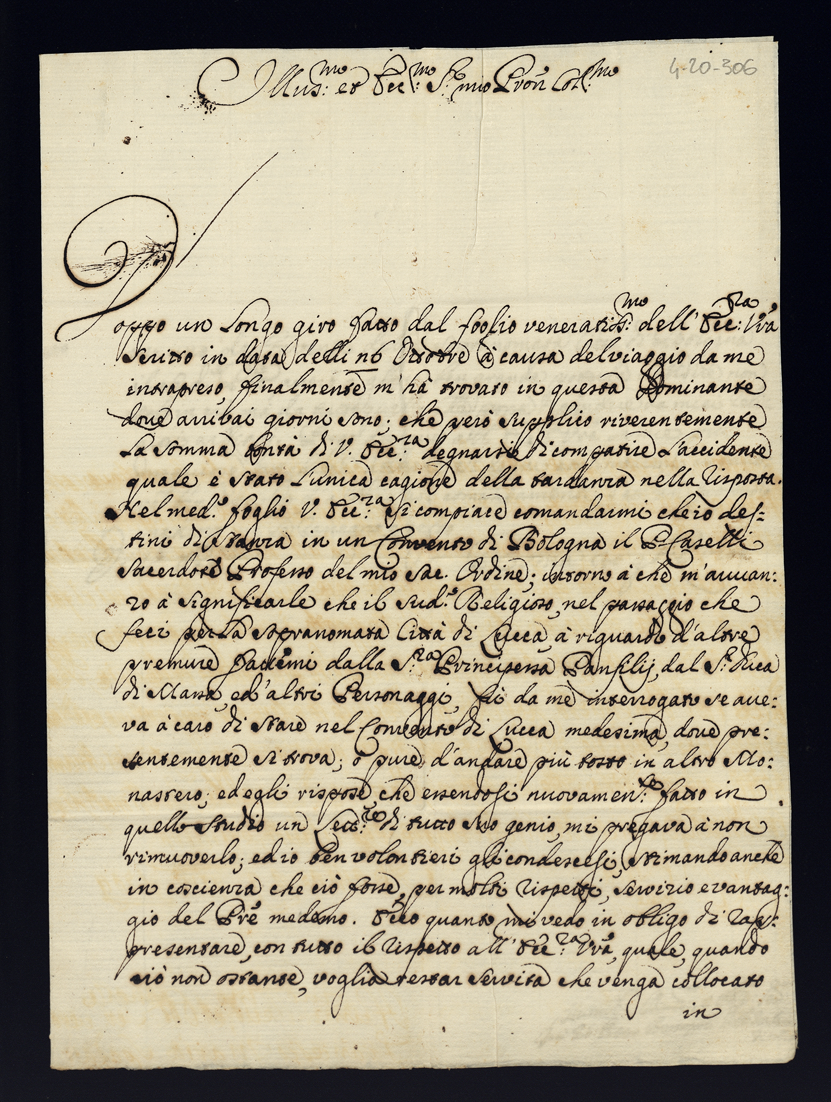 4-20-306
Illus:mo et Ecc:mo S.r mio Pron Col:mo
Doppo un longo giro fatto dal foglio veneratiss:mo dell'Ecc:za Vra
scritto in data delli 16 Ottobre à causa del viaggio da me
intrapreso, finalmente m'hà trovato in questa Dominante
dove arrivai giorni sono; che però supplico riverentemente
la somma bontà di V. Ecc:za degnarsi di compatire l'accidente
quale è stato l'unica cagione della tardanza nella risposta.
Nel med.o foglio V. Ecc:za si compiace comandarmi che io des-
tini di stanza in un Convento di Bologna il P. Caselli
Sacerdote Professo del mio Sac. Ordine; intorno à che m'avvan:
zo à significarle che il sud.o Religioso, nel passaggio che
feci per la sopranomata Città di Lucca, à riguardo d'altre
premure fattemi dalla S.ra Principessa Panfilij, dal S.r Duca
di Massa, ed'altri Personaggi, fù da me interrogato se ave:
va à caro di stare nel Convento di Lucca medesima, dove pre:
sentemente si trova; ò pure d'andare più tosto in altro Mo:
nastero; ed egli rispose, che essendosi nuovamen:te fatto in
quello Studio un Lett:re di tutto suo genio, mi pregava à non
rimuoverlo; ed io ben volontieri gli condescesi, stimando anche
in coscienza che ciò fosse, per molti rispetti, servizio e vantag:
gio del Pre medemo. Ecco quanto mi vedo in obligo di rap:
presentare, con tutto il rispetto all'Ecc:za Vra, quale, quando
ciò non ostante, voglia restar servita che venga collocato
in